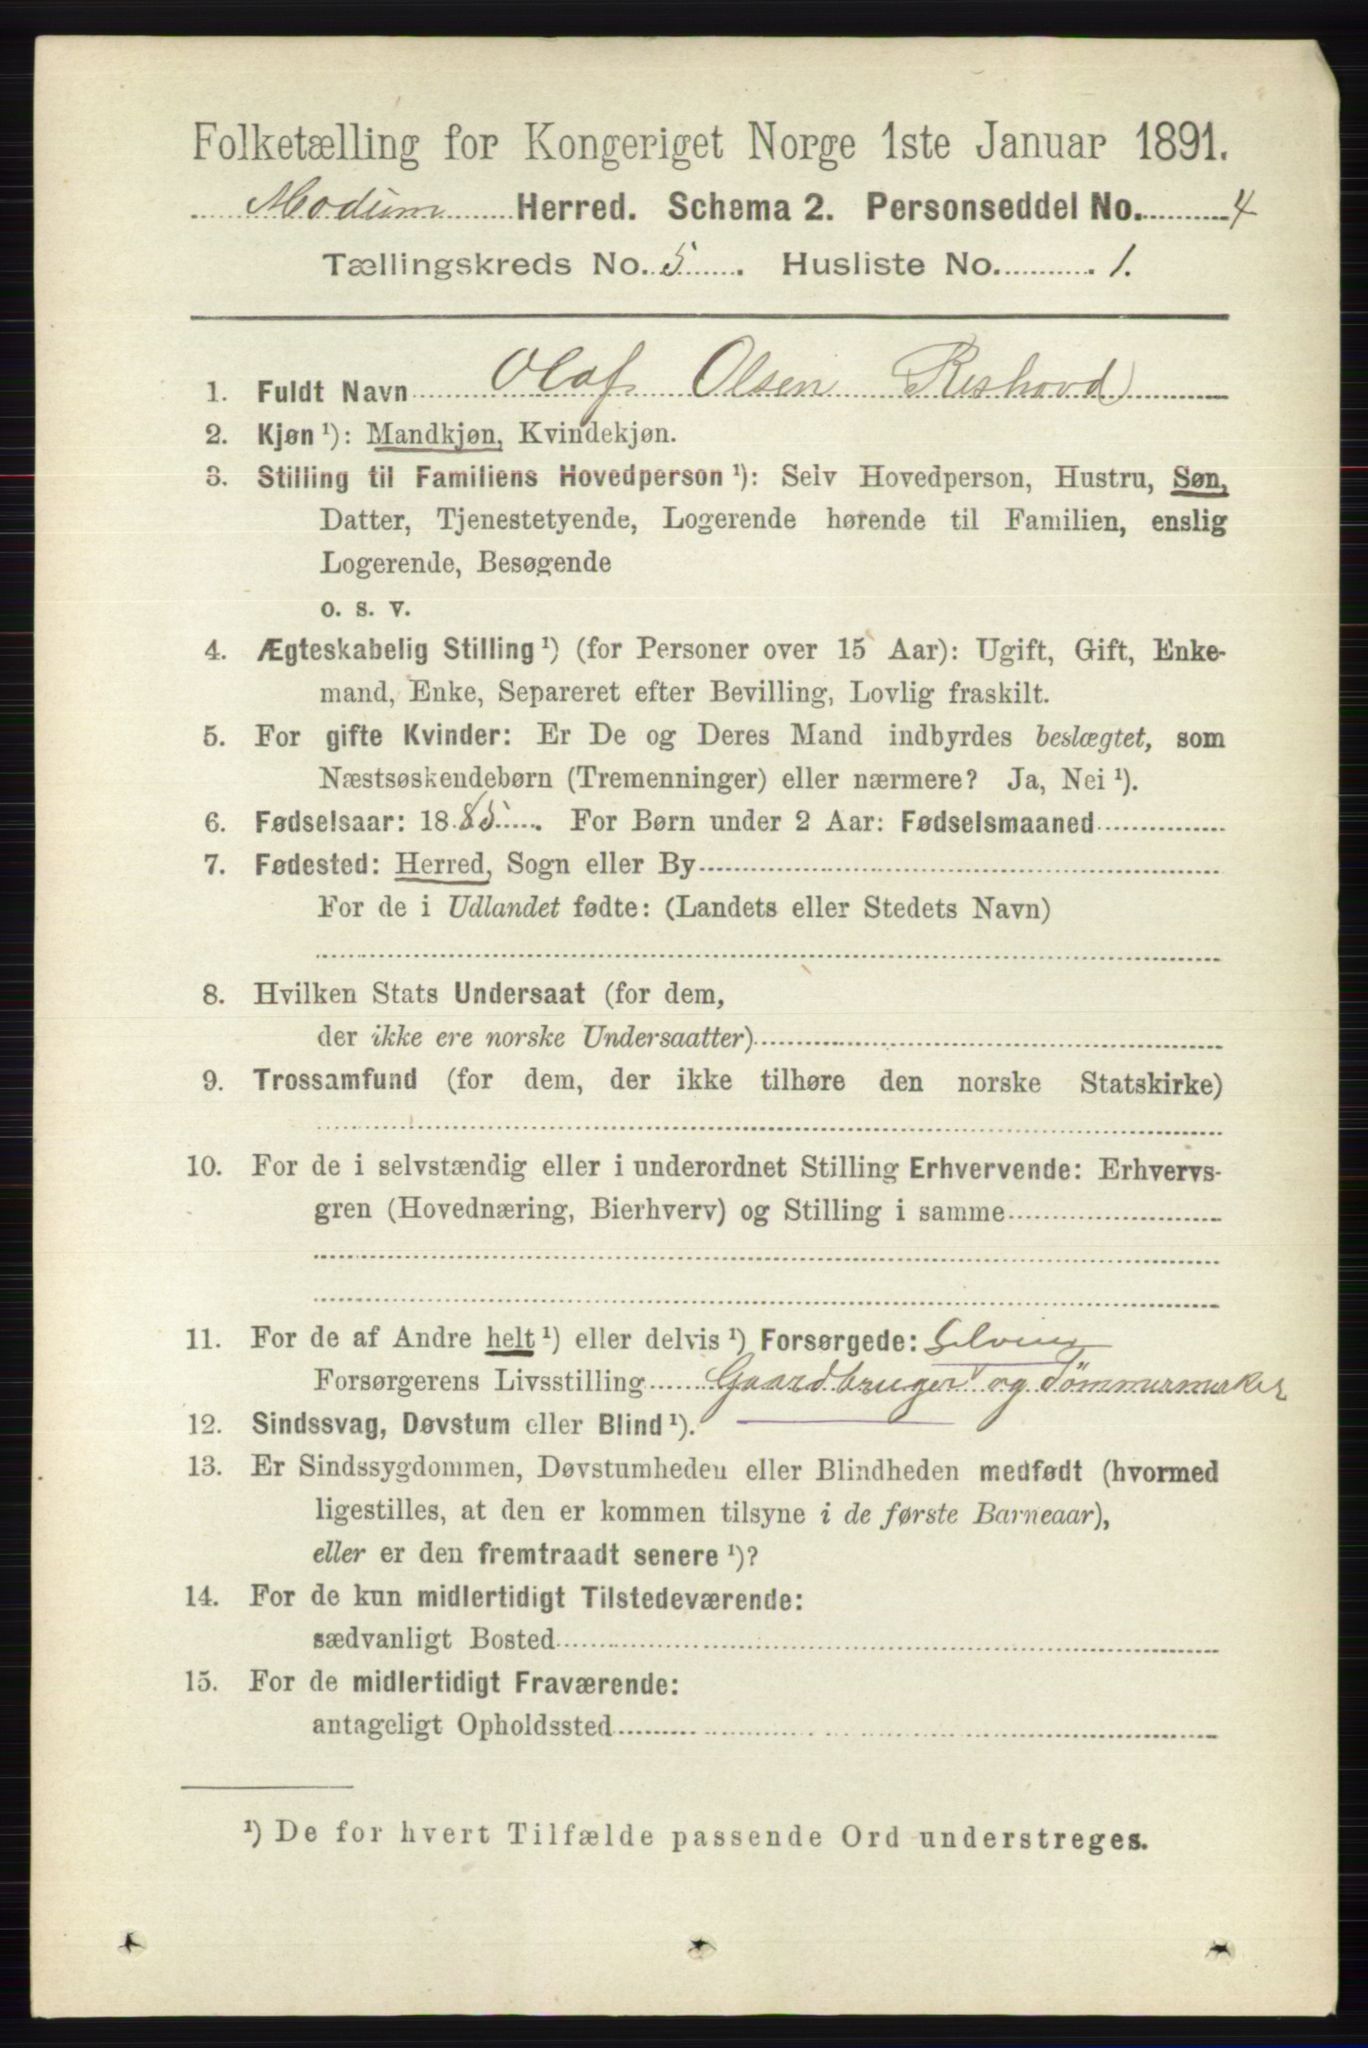 Folketælling for Kongeriget Norge 1ste Januar 1891.
Modum Herred. Schema 2. Personseddel No. 4
Tællingskreds No. 5. Husliste No. 1.
1. Fuldt Navn Olaf Olsen Rishovd
2. Kjøn ¹): Mandkjøn, Kvindekjøn.
3. Stilling til Familiens Hovedperson ¹): Selv Hovedperson, Hustru, Søn,
Datter, Tjenestetyende, Logerende hørende til Familien, enslig
Logerende, Besøgende
o. s. v.
4. Ægteskabelig Stilling ¹) (for Personer over 15 Aar): Ugift, Gift, Enke-
mand, Enke, Separeret efter Bevilling, Lovlig fraskilt.
5. For gifte Kvinder: Er De og Deres Mand indbyrdes beslægtet, som
Næstsøskendebørn (Tremenninger) eller nærmere? Ja, Nei ¹).
6. Fødselsaar: 1885. For Børn under 2 Aar: Fødselsmaaned
7. Fødested: Herred, Sogn eller By
For de i Udlandet fødte: (Landets eller Stedets Navn)
8. Hvilken Stats Undersaat (for dem,
der ikke ere norske Undersaatter)
9. Trossamfund (for dem, der ikke tilhøre den norske Statskirke)
10. For de i selvstændig eller i underordnet Stilling Erhvervende: Erhvervs-
gren (Hovednæring, Bierhverv) og Stilling i samme
11. For de af Andre helt ¹) eller delvis ¹) Forsørgede:
Forsørgerens Livsstilling Gaardbruger og Tømmermerker
12. Sindssvag, Døvstum eller Blind ¹).
13. Er Sindssygdommen, Døvstumheden eller Blindheden medfødt (hvormed
ligestilles, at den er kommen tilsyne i de første Barneaar),
eller er den fremtraadt senere ¹)?
14. For de kun midlertidigt Tilstedeværende:
sædvanligt Bosted
15. For de midlertidigt Fraværende:
antageligt Opholdssted
¹) De for hvert Tilfælde passende Ord understreges.